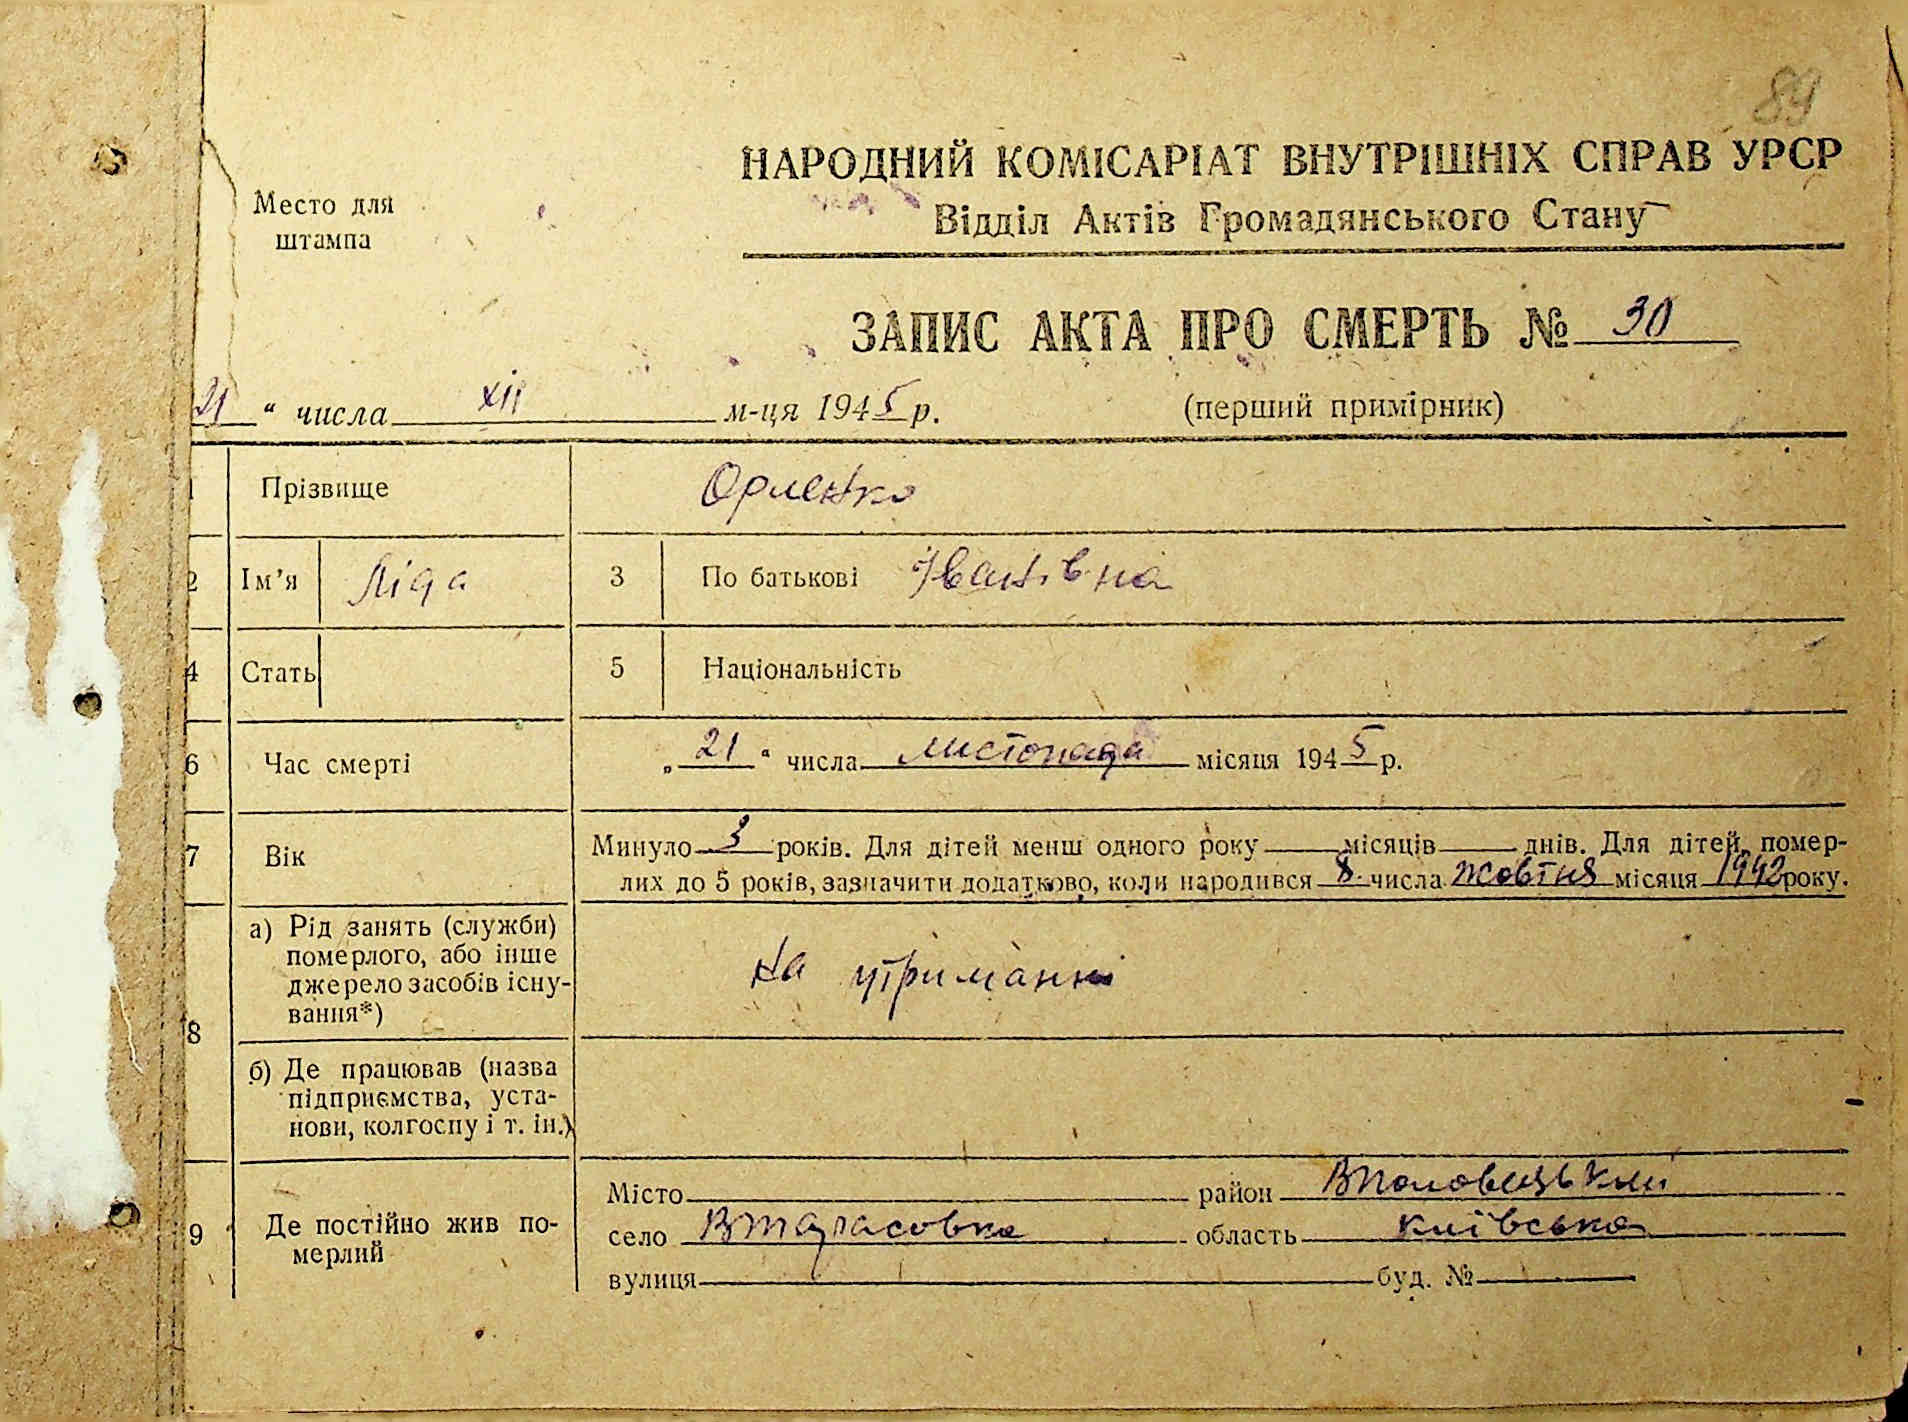 89
НАРОДНИЙ КОМІСАРІАТ ВНУТРІШНІХ СПРАВ УРСР
Место для штампа
Відділ Актів Громадянського Стану
ЗАПИС АКТА ПРО СМЕРТЬ № 30
21 " числа XII м-ця 1945 р. (перший примірник)
1 Прізвище Орленко
2 Ім'я Ліда 3 По батькові Іванівна
4 Стать 5 Національність
6 Час смерті „ 21 " числа листопада місяця 1945 р.
7 Вік Минуло 3 років. Для дітей менш одного року місяців днів. Для дітей, помер-
лих до 5 років, зазначити додатково, коли народився 8 числа жовтня місяця 1942 року.
8 а) Рід занять (служби)
померлого, або інше
джерело засобів існу-
вання*) на утриманні
б) Де працював (назва
підприємства, уста-
нови, колгоспу і т. ін.)
9 Де постійно жив по-
мерлий
Місто район Вполовецький
село Втарасовка область київська
вулиця буд. №